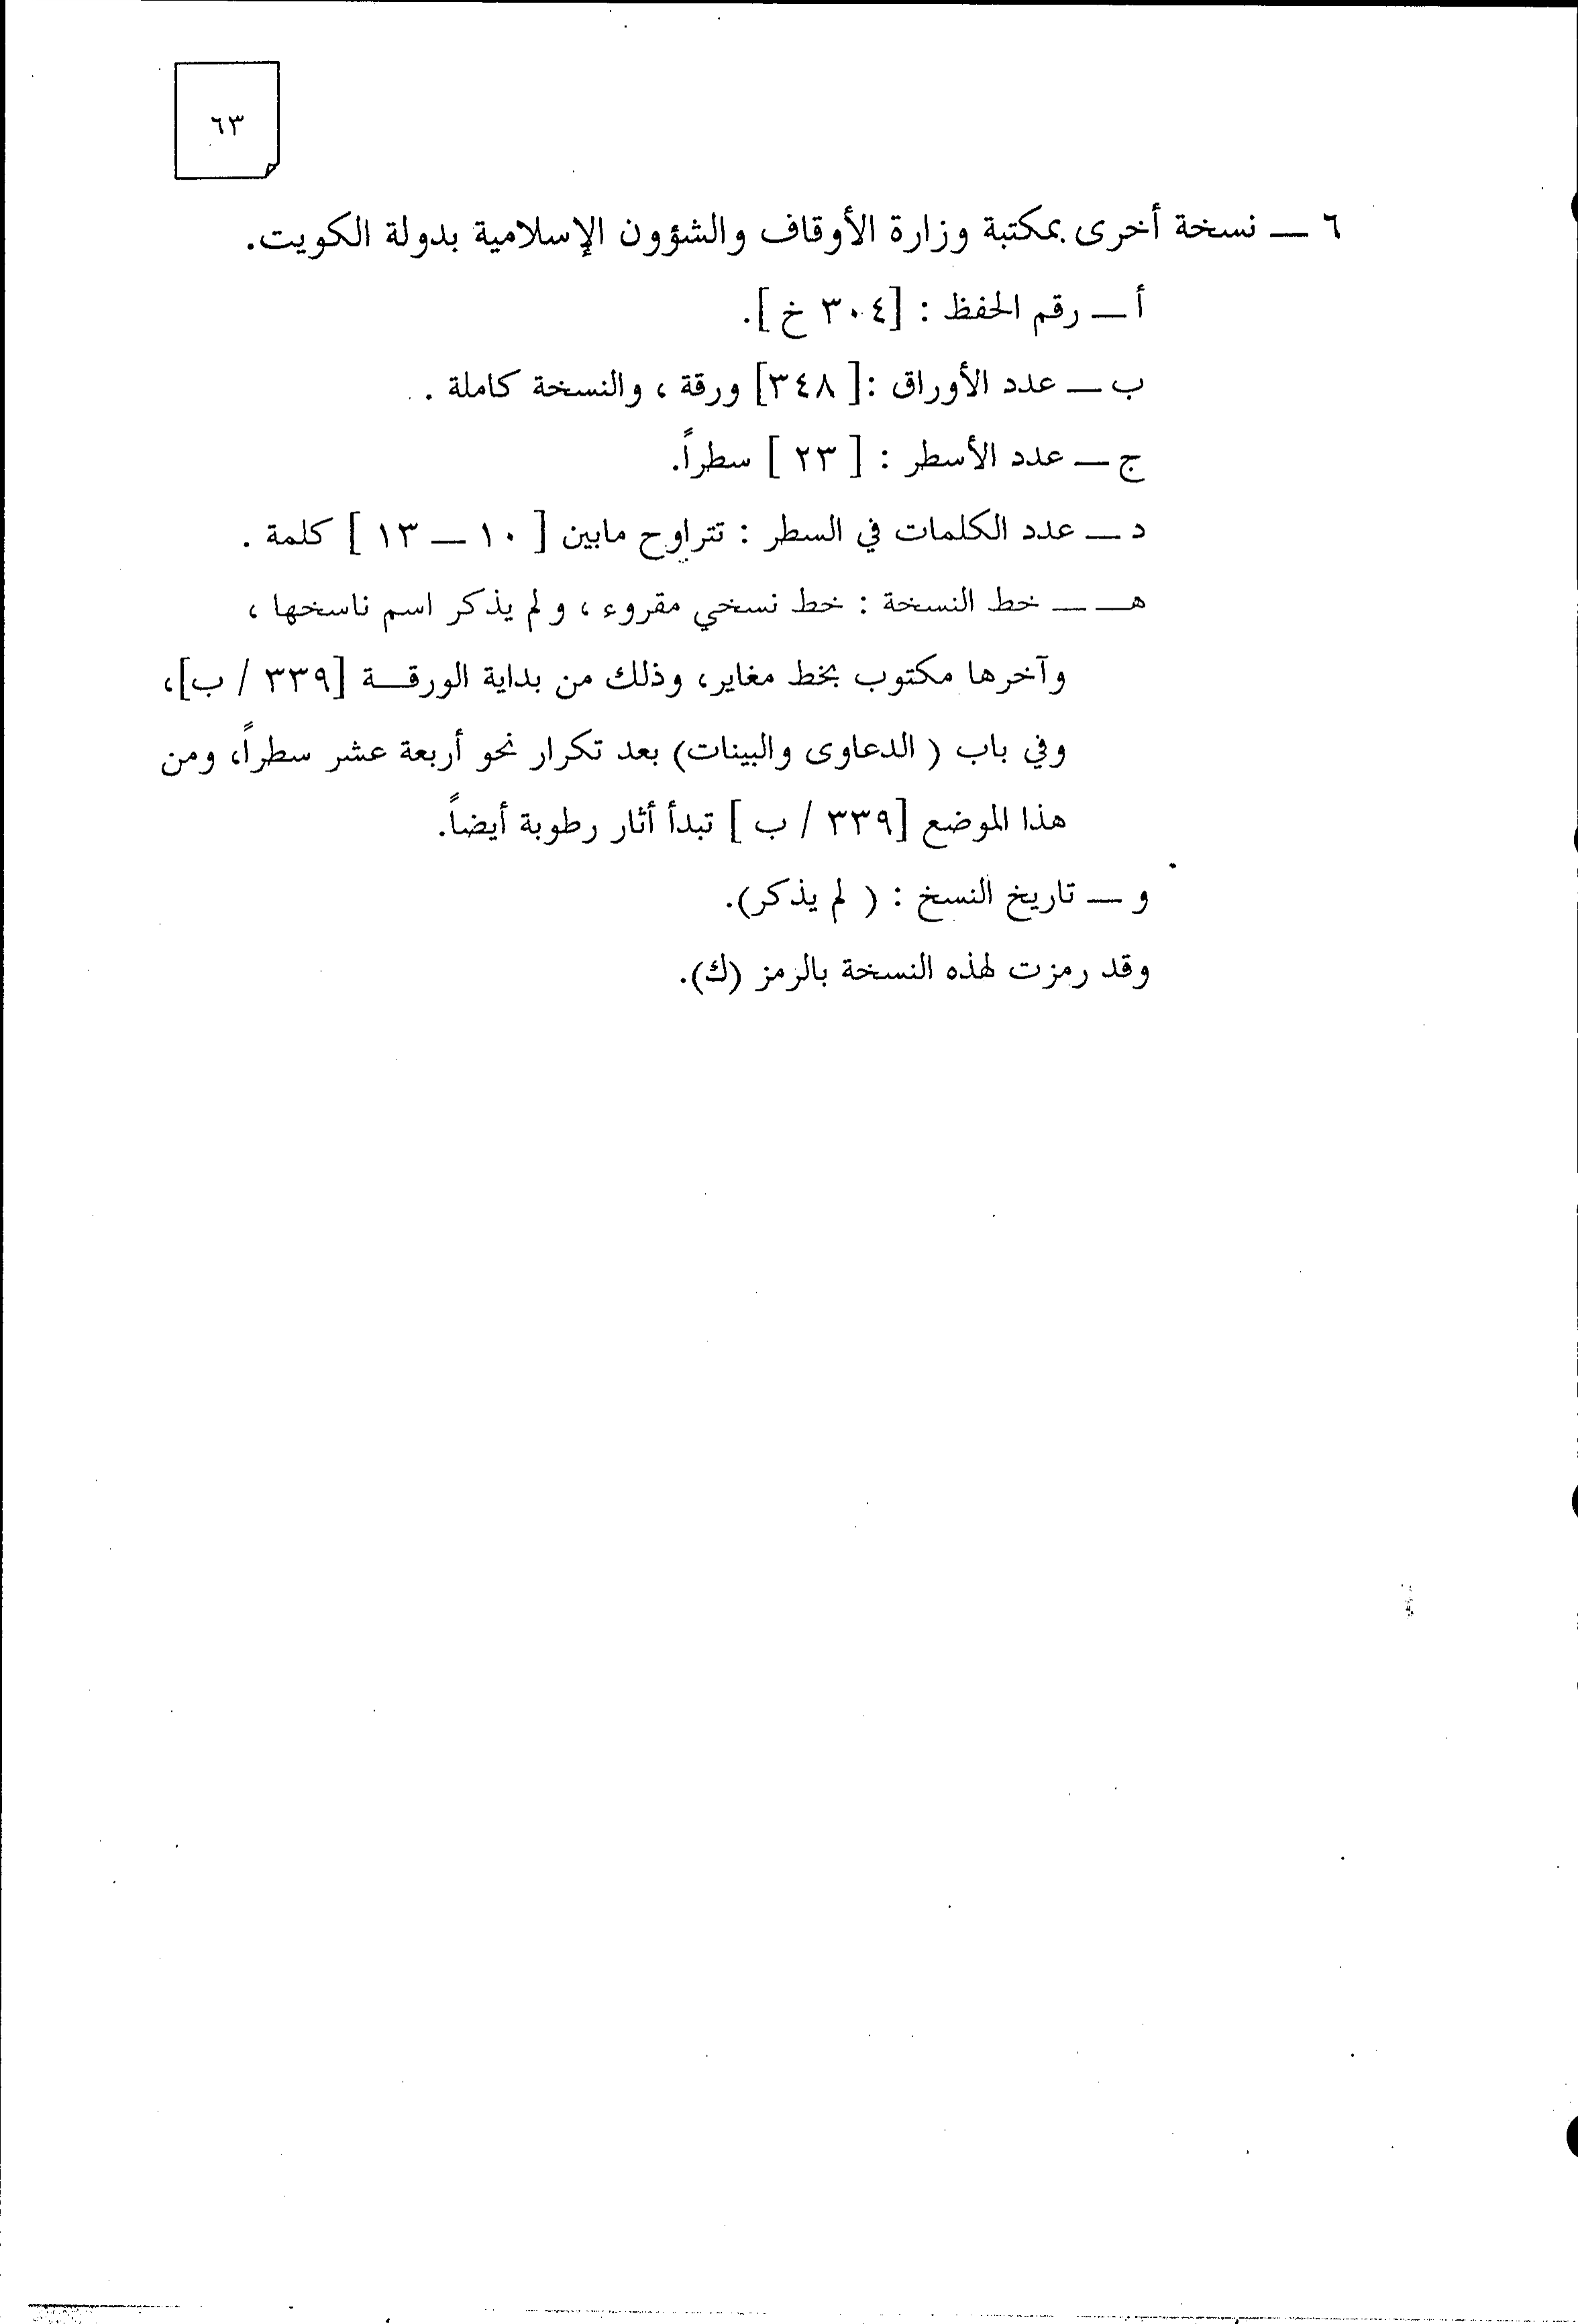 ٦٣
٦ ـــ نسخة أخرى بمكتبة وزارة الأوقاف والشؤون الإسلامية بدولة الكويت.
أ ـــ رقم الحفظ : [٣٠٤ خ ].
ب ـــ عدد الأوراق :[ ٣٤٨] ورقة ، والنسخة كاملة .
ج ـــ عدد الأسطر : [ ٢٣ ] سطراً.
د ـــ عدد الكلمات في السطر : تتراوح مابين [ ١٠ ـــ ١٣ ] كلمة .
هـــ ـــ خط النسخة : خط نسخي مقروء ، و لم يذكر اسم ناسخها ،
وآخرها مكتوب بخط مغاير، وذلك من بداية الورقـــة [٣٣٩ / ب]،
وفي باب ( الدعاوى والبينات) بعد تكرار نحو أربعة عشر سطراً، ومن
هذا الموضع [٣٣٩ / ب ] تبدأ أثار رطوبة أيضاً.
و ـــ تاريخ النسخ : ( لم يذكر).
وقد رمزت لهذه النسخة بالرمز (ك).